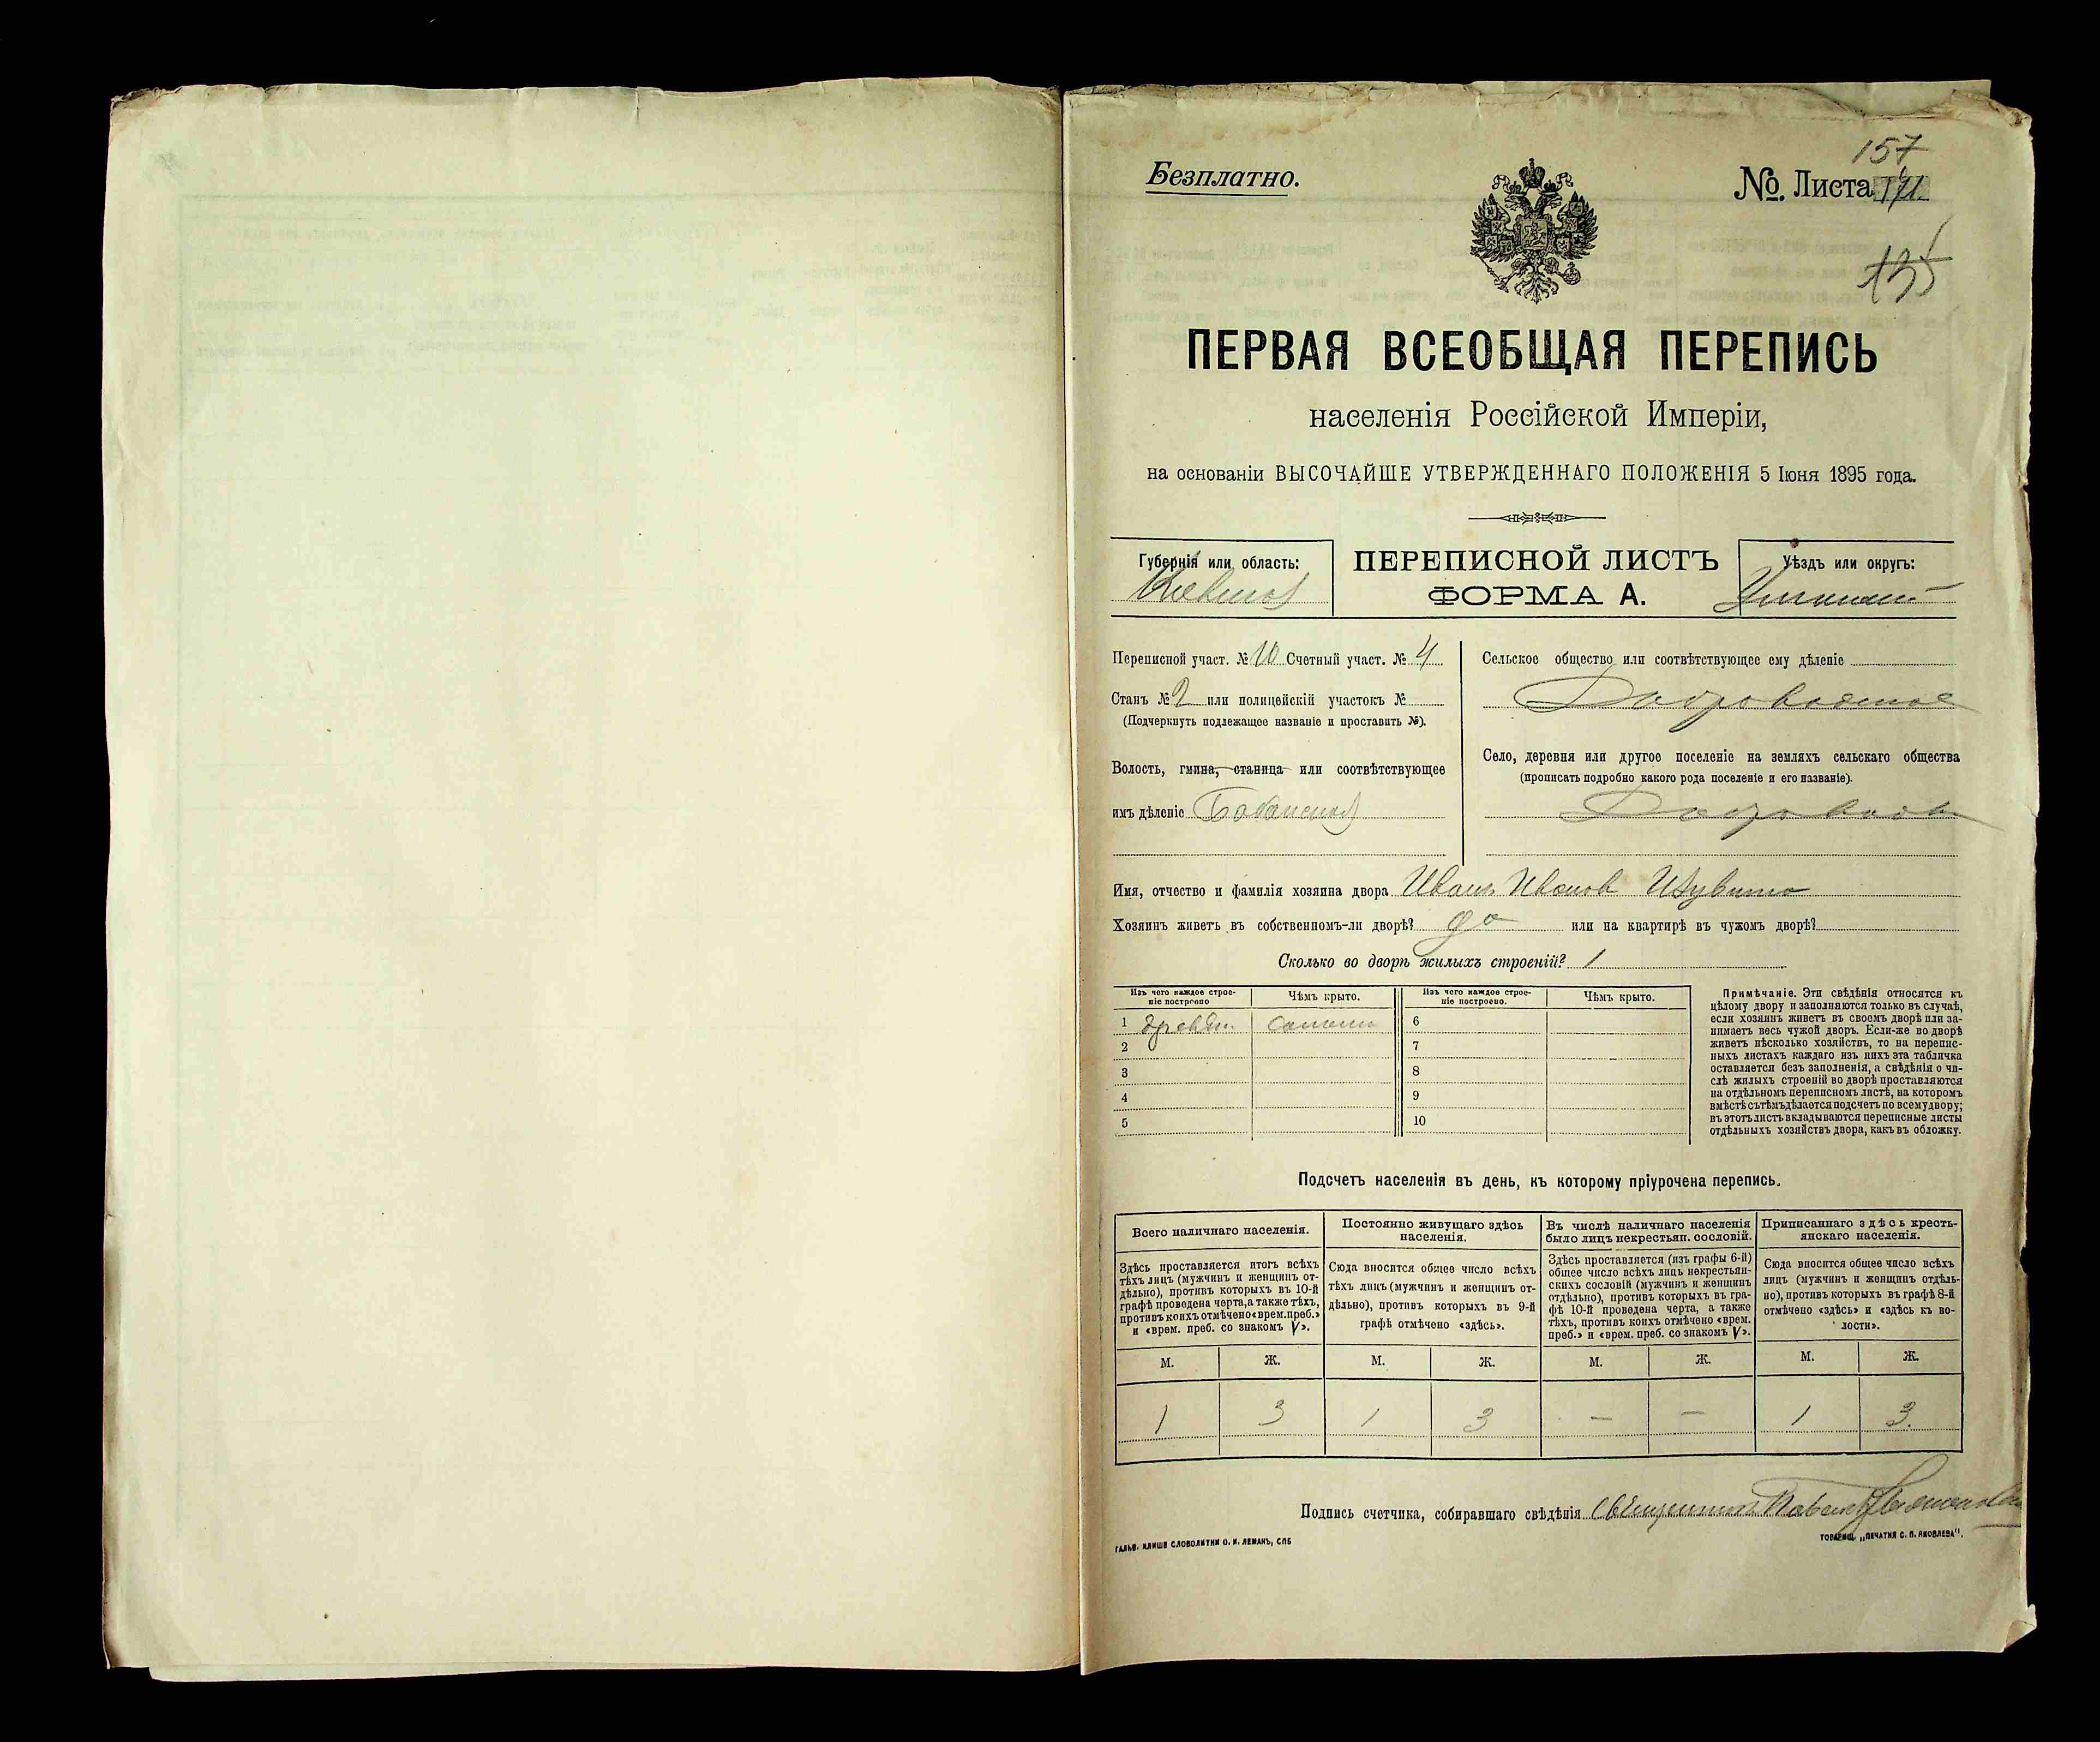 157
Безплатно.
№. Листа 171.
135
ПЕРВАЯ ВСЕОБЩАЯ ПЕРЕПИСЬ
населенія Россійской Имперіи,
на основаніи ВЫСОЧАЙШЕ УТВЕРЖДЕННАГО ПОЛОЖЕНІЯ 5 Іюня 1895 года.
Губернія или область:
Кіевской
ПЕРЕПИСНОЙ ЛИСТЪ
ФОРМА А.
Уѣздъ или округъ:
Уманскій
Переписной участ. № 10 Счетный участ. № 4
Станъ № 2 или полицейскій участокъ №
(Подчеркнуть подлежащее названіе и проставить №).
Волость, гмина, станица или соотвѣтствующее
имъ дѣленіе Бабанской
Сельское общество или соотвѣтствующее ему дѣленіе
Доброводское
Село, деревня или другое поселеніе на земляхъ сельскаго общества
(прописать подробно какого рода поселеніе и его названіе).
Имя, отчество и фамилія хозяина двора Иванъ Иванов
Хозяинъ живетъ въ собственномъ-ли дворѣ? да или на квартирѣ въ чужомъ дворѣ?
Сколько во дворѣ жилыхъ строеній? 1
Изъ чего каждое строе-
ніе построено
Чѣмъ крыто.
Изъ чего каждое строе-
ніе построено.
Чѣмъ крыто.
1 древян. солом.
2
3
4
5
6
7
8
9
10
Примѣчаніе. Эти свѣдѣнія относятся къ
цѣлому двору и заполняются только въ случаѣ,
если хозяинъ живетъ въ своемъ дворѣ или за-
нимаетъ весь чужой дворъ. Если-же во дворѣ
живетъ нѣсколько хозяйствъ, то на перепис-
ныхъ листахъ каждаго изъ нихъ эта табличка
оставляется безъ заполненія, а свѣдѣнія о чи-
слѣ жилыхъ строеній во дворѣ проставляются
на отдѣльномъ переписномъ листѣ, на которомъ
вмѣстѣ съ тѣмъ дѣлается подсчетъ по всему двору;
въ этотъ листъ вкладываются переписные листы
отдѣльныхъ хозяйствъ двора, какъ въ обложку.
Подсчетъ населенія въ день, къ которому пріурочена перепись.
Всего наличнаго населенія.
Здѣсь проставляется итогъ всѣхъ
тѣхъ лицъ (мужчинъ и женщинъ от-
дѣльно), противъ которыхъ въ 10-й
графѣ проведена черта, а также тѣхъ,
противъ коихъ отмѣчено «врем. преб.»
и «врем. преб. со знакомъ V».
Постоянно живущаго здѣсь
населенія.
Сюда вносится общее число всѣхъ
тѣхъ лицъ (мужчинъ и женщинъ от-
дѣльно), противъ которыхъ въ 9-й
графѣ отмѣчено «здѣсь».
Въ числѣ наличнаго населенія
было лицъ некрестьян. сословій.
Здѣсь проставляется (изъ графы 6-й)
общее число всѣхъ лицъ некрестьян-
скихъ сословій (мужчинъ и женщинъ
отдѣльно), противъ которыхъ въ гра-
фѣ 10-й проведена черта, а также
тѣхъ, противъ коихъ отмѣчено «врем.
преб.» и «врем. преб. со знакомъ V».
Приписаннаго здѣсь кресть-
янскаго населенія.
Сюда вносится общее число всѣхъ
лицъ (мужчинъ и женщинъ отдѣль-
но), противъ которыхъ въ графѣ 8-й
отмѣчено «здѣсь» и «здѣсь въ во-
лости».
М. Ж. М. Ж. М. Ж. М. Ж.
1 3 1 3 — — 1 3.
Подпись счетчика, собиравшаго свѣдѣнія Священникъ Павелъ
ГАЛЬВ. КЛИШЕ СЛОВОЛИТНИ О. И. ЛЕМАНЪ, СПБ
ТОВАРИЩ. „ПЕЧАТНЯ С. П. ЯКОВЛЕВА".